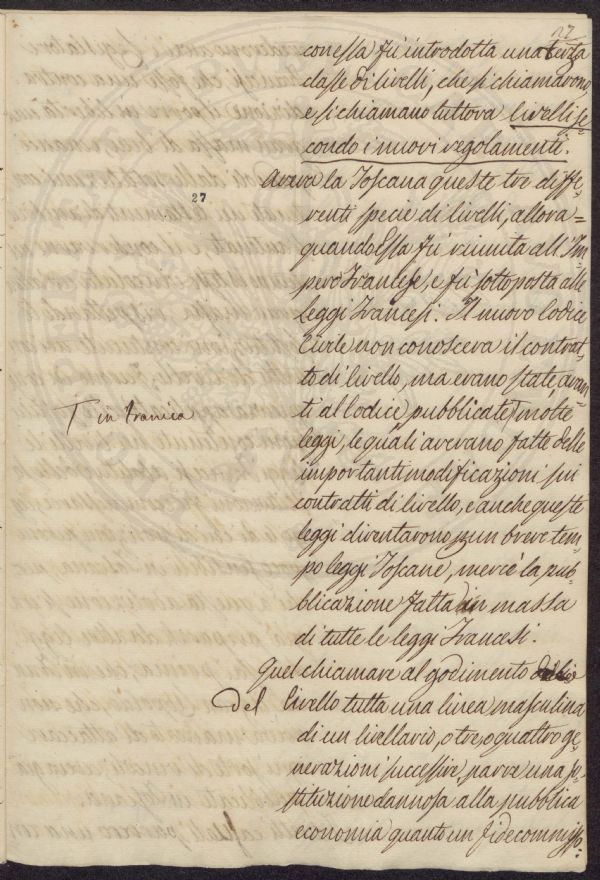 27
con essa fu introdotta una terza
classe di livelli, che si chiamarono
e si chiamano tuttora livelli se=
condo i nuovi regolamenti.
Aveva la Toscana queste tre diffe=
27
renti specie di livelli, allora=
quando Essa fu riunita all'Im=
pero Francese, e fu sottoposta alle
leggi Francesi. Il nuovo Codice
Civile non conosceva il contrat=
to di livello, ma erano state, avan=
T in Francia
ti al Codice, pubblicate T molte
leggi, le quali avevano fatte delle
importanti modificazioni sui
contratti di livello, e anche queste
leggi diventarono p un breve tem=
po leggi Toscane, mercè la pub=
blicazione fatta in massa
di tutte le leggi Francesi.
Quel chiamare al godimento
del livello tutta una linea masculina
di un livellario, o tre, o quattro ge=
nerazioni successive, parve una so=
stituzione dannosa alla pubblica
economia quanto un fidecommisso: